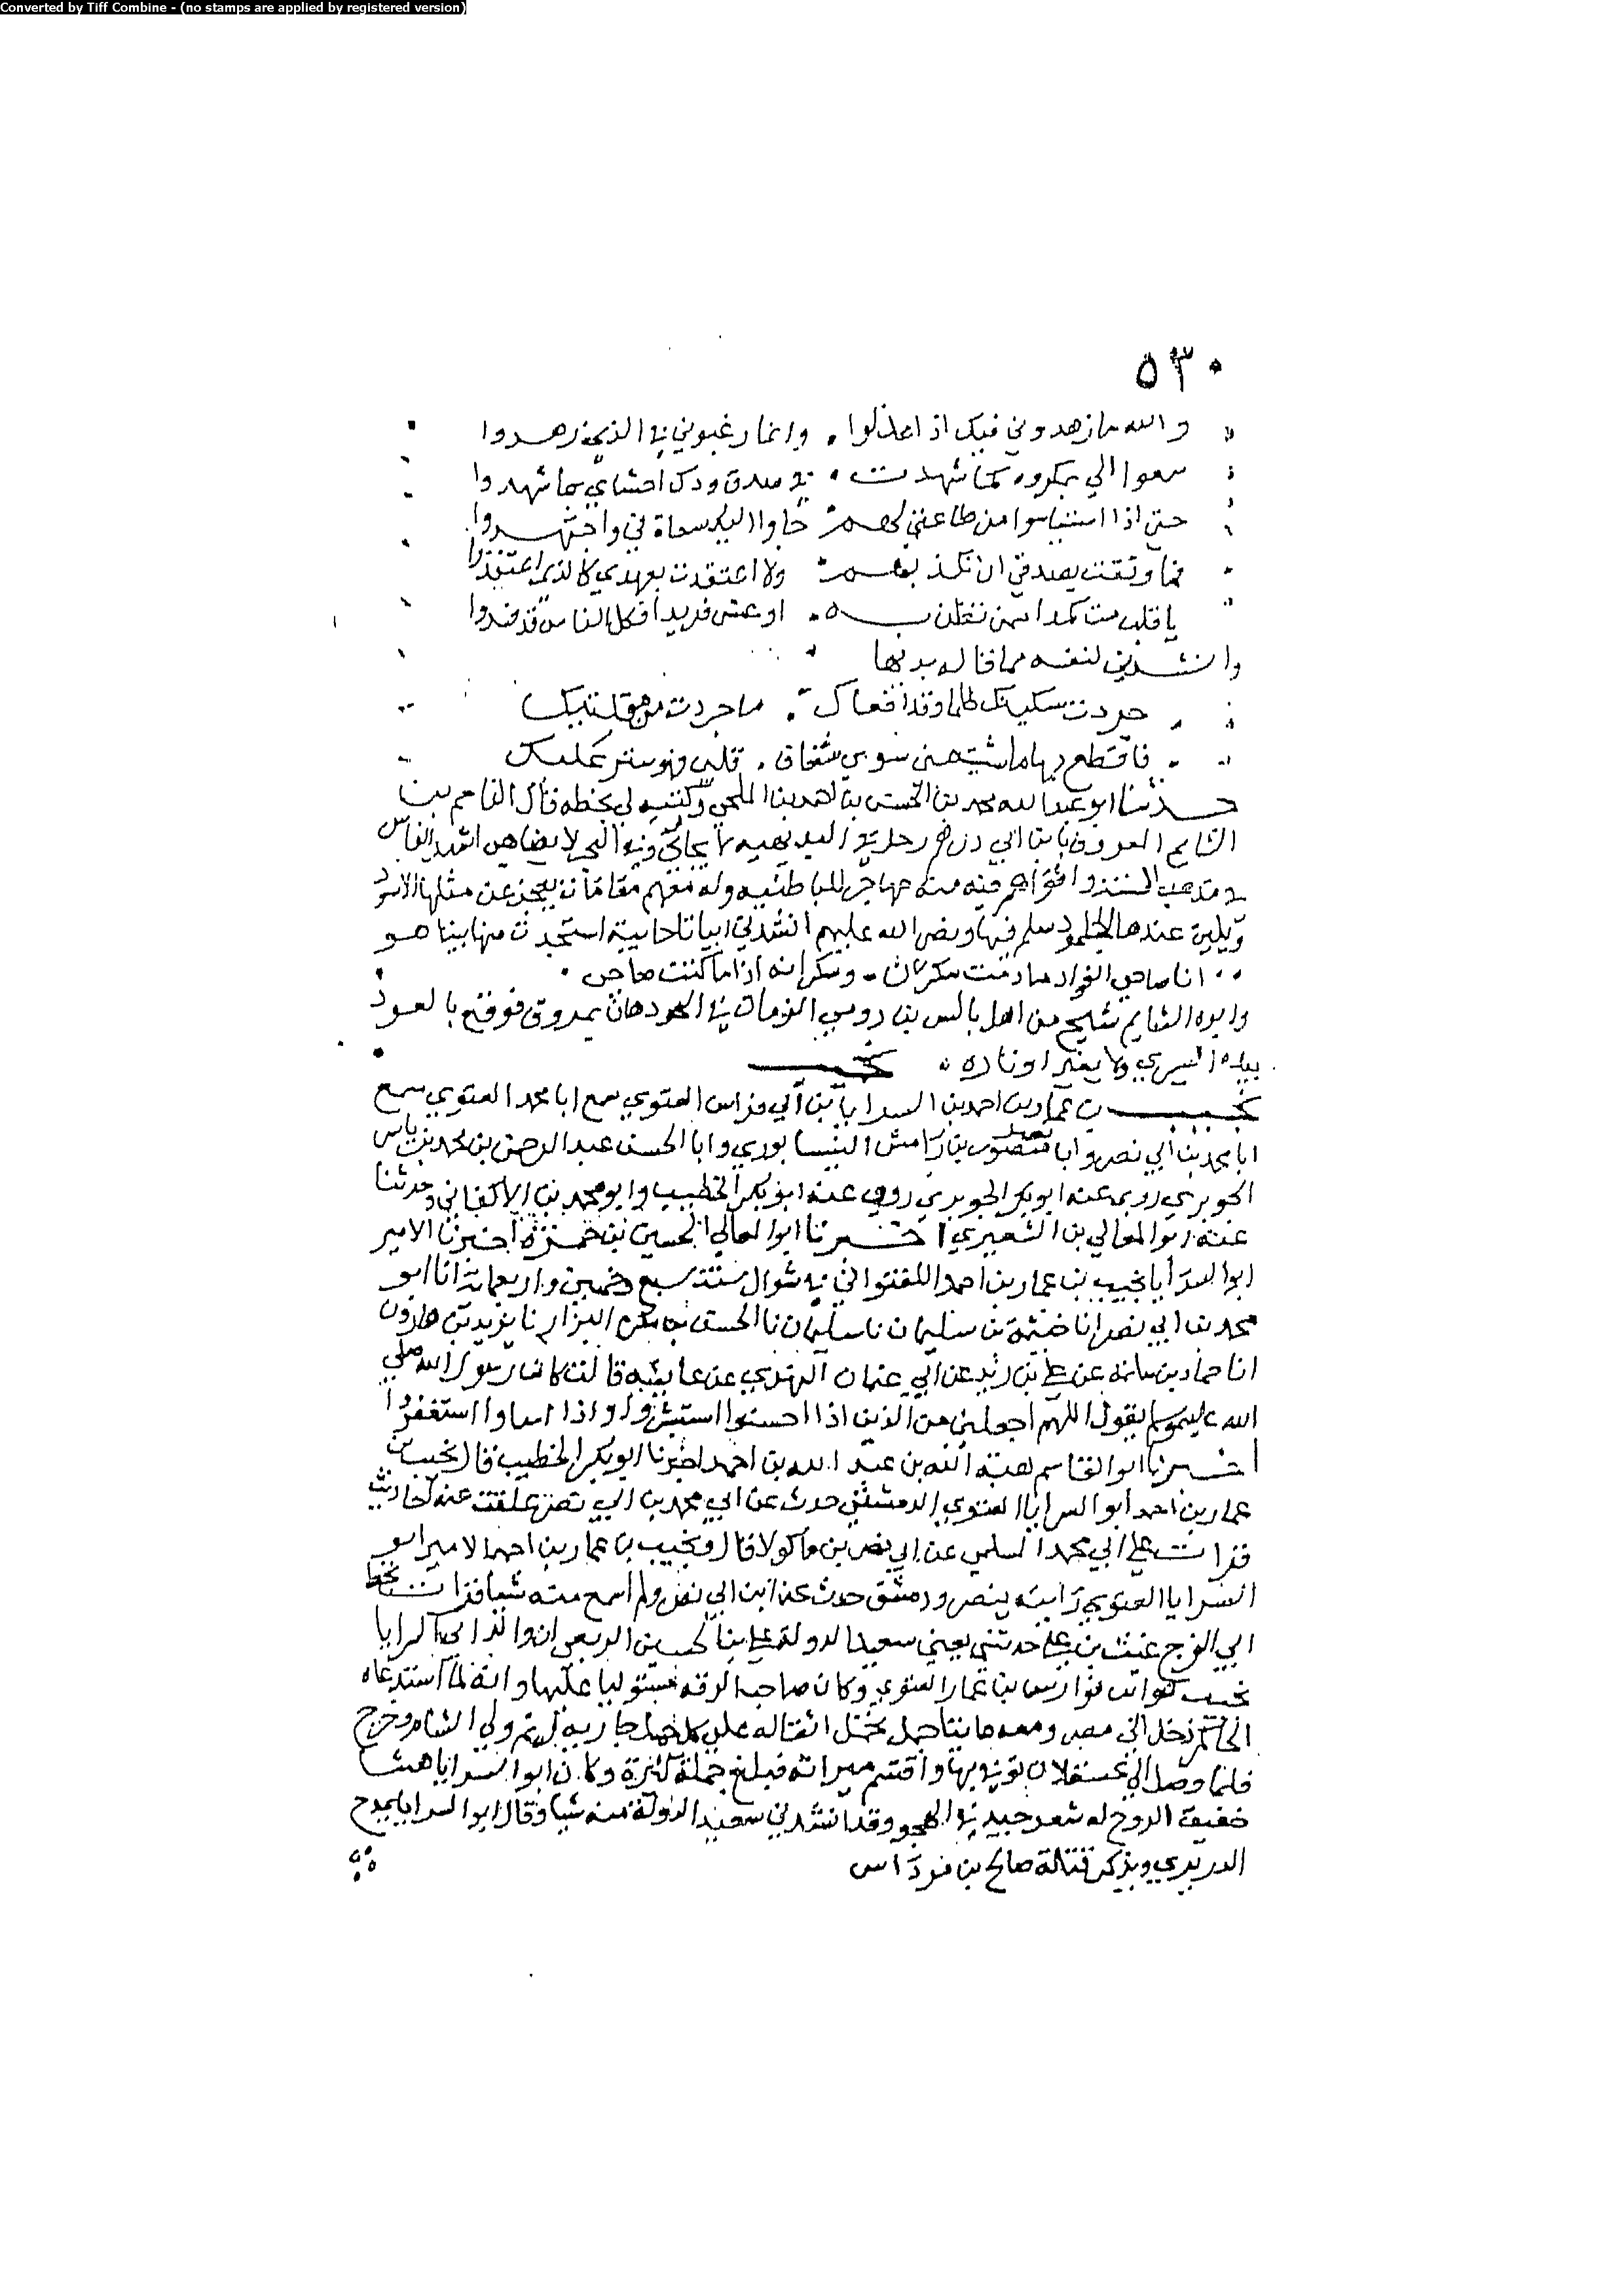 Converted by Tiff Combine - (no stamps are applied by registered version)
٥٣٠
والله ما زهدوني فيك اذ اعذلوا . وانما رغبوني في الذي زهدوا
سعوا الي بمكروه كما شهدت . في صدق ودك احشاي بما شهدوا
حتى اذا استياسوا من طاعتي لهم جاوا اليك سعاة بي واجتهدوا
فما وثقت بصدقي ان تكذبهم ولا اعتقدت بعهدي كالذي اعتقدوا
يا قلب مت كمدا ممن تظن به . او عش فريدا فكل الناس قد فسدوا
وانشدني لنفسه مما قاله بديها
جردت سكينك ظلما وقد اغناك . ما جردت من مقلتيك
فاقطع بها ما شيت مني سوى شغاف . قلبي فهو ستر عليك
حدثنا ابو عبد الله محمد بن المحسن بن احمد بن الملحي وكتبه لي بخطه قال القاسم بن
القاسم المعروف بابن ابي رجل في البديهيه لا يجارى وفيه البحر لا يضاهى اشد الناس
في مذهب السنه واقواهم فيه منه مهاجر للباطنيه وله معهم مقامات يعجز عن مثلها الاسود
ويلين عندها الجلمود سلم فيها ونصر الله عليهم انشدني ابياتا حاييه استجدت منها بيتا هو
انا صاحي الفواد ما دمت سكران . وسكرانه اذا ما كنت صاحي .
وابوه القايم شيخ من اهل بالس بن رومي الزمان في العود كان يمر وق فوقع بالعود
بيده اليسرى ولا يغير اوتاره نجيب
نجيب بن عمار بن احمد بن السرايا بن ابي فراس الغنوي سمع ابا محمد الغنوي سمع
ابا محمد بن ابي نصر وابا منصور بن رامش النيسابوري وابا الحسن عبد الرحمن بن محمد بن ياسر
الجوبري روى عنه ابو بكر الجوبري روى عنه ابو بكر الخطيب وابو محمد بن الاكفاني وحدثنا
عنه ابو المعالي بن الشعيري اخبرنا ابو المعالي الحسين بن حمزة اخبرنا الامير
ابو السرايا نجيب بن عمار بن احمد الغنوي في شوال سنة سبع وخمسين واربعماية انا ابو
محمد بن ابي نصر انا خيثمة بن سليمان نا سليمان نا الحسن بن مكرم البزار نا يزيد بن هارون
انا حماد بن سلمه عن علي بن زيد عن ابي عثمان النهدي عن عايشه قالت كان رسول الله صلى
الله عليه وسلم يقول اللهم اجعلني من الذين اذا احسنوا استبشروا واذا اساوا استغفروا
اخبرنا ابو القاسم هبة الله بن عبد الله بن احمد اخبرنا ابو بكر الخطيب قال نجيب بن
عمار بن احمد ابو السرايا الغنوي الدمشقي حدث عن ابي محمد بن ابي نصر علقت عنه احاديث
قرات على ابي محمد السلمي عن ابي نصر بن ماكولا قال ونجيب بن عمار بن احمد الامير ابو
السرايا الغنوي رايته بمصر ودمشق حدث عن ابن ابي نصر ولم اسمع منه شيا قرات بخط
ابي الفرج غيث بن علي حدثني يعني سعيد الدولة علي بن الحسين الربعي ان والد ابي السرايا
نجيب فوارس بن عمار الغنوي وكان صاحب الرقه مستوليا عليها وانه لما استدعاه
الحاكم دخل الى مصر ومعه مايتا جمل تحمل اثقاله على كل جمل جاريه ثم ولي الشام وخرج
فلما وصل الى عسقلان توفي بها واقتسم ميراثه فبلغ جملة كثيرة وكان ابو السرايا هشا
خفيف الروح له شعر جيد في الهجو وقد انشدني سعيد الدولة منه شيا وقال ابو السرايا يمدح
الدزبري ويذكر قتالة صالح بن مرداس